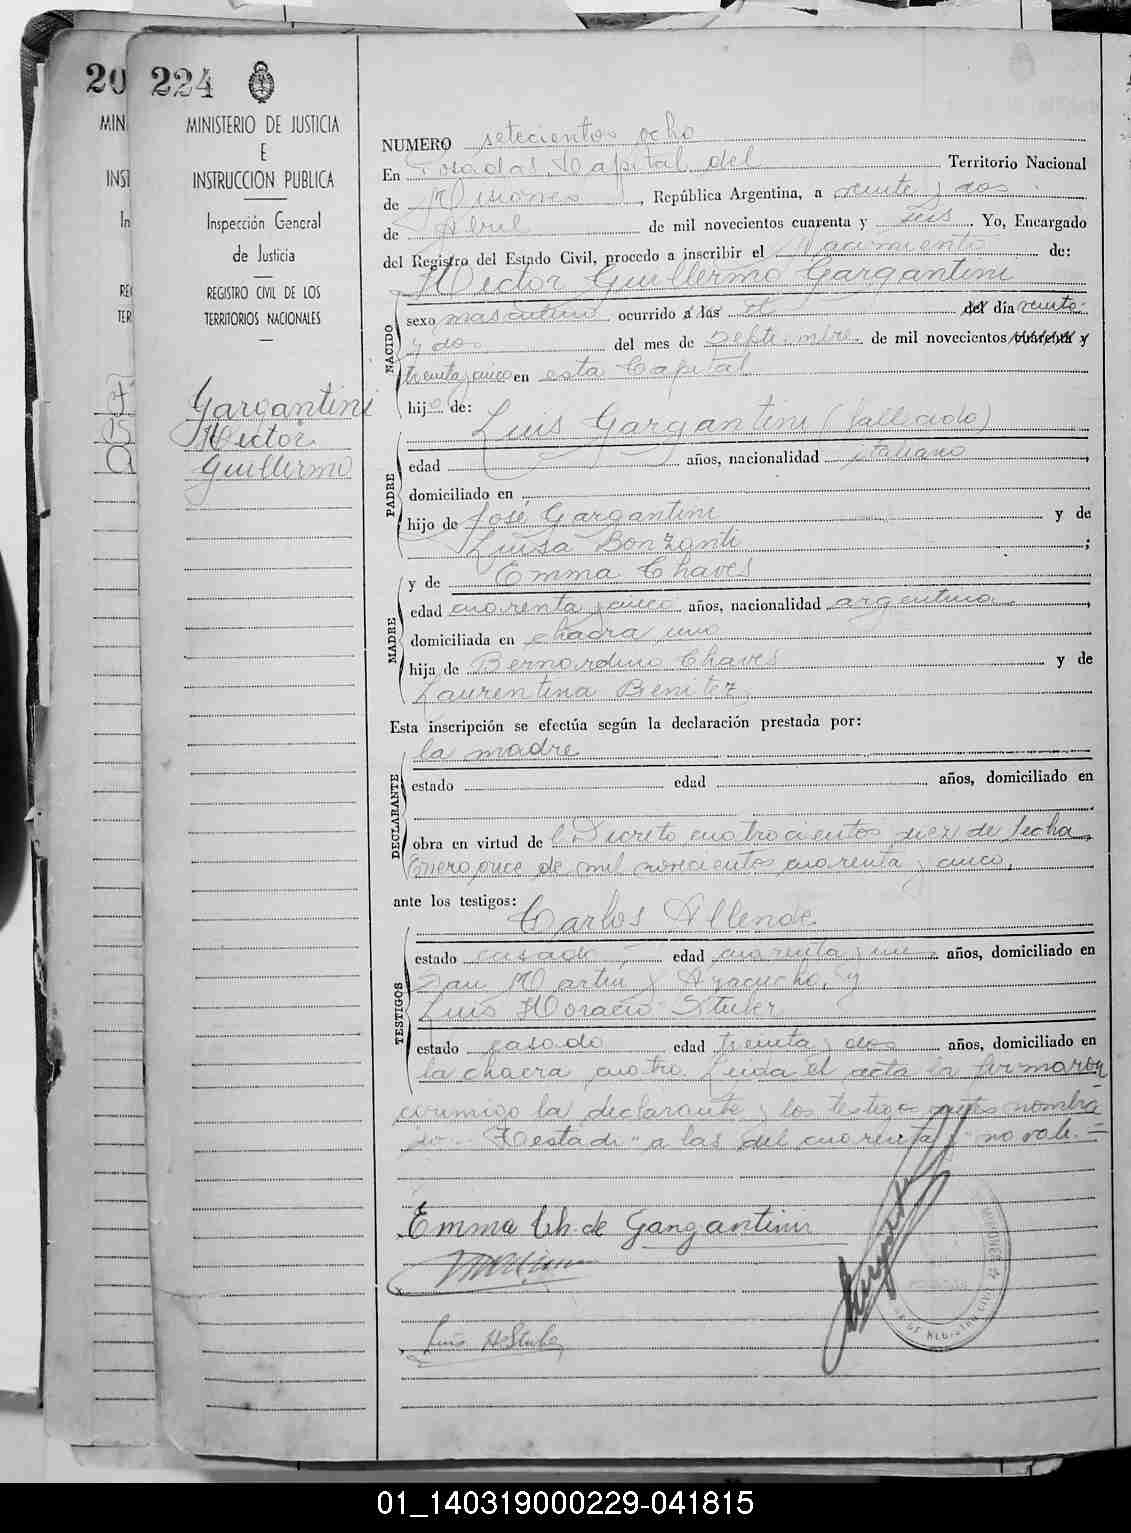 20
MIN
INST
In
REG
TER
224
MINISTERIO DE JUSTICIA
E
INSTRUCCION PUBLICA
Inspección General
de Justicia
REGISTRO CIVIL DE LOS
TERRITORIOS NACIONALES
Gargantini
Hector
Guillermo
NUMERO setecientos ocho
En Posadas, Capital del Territorio Nacional
de Misiones, República Argentina, a veinte y dos
de Abril de mil novecientos cuarenta y seis. Yo, Encargado
del Registro del Estado Civil, procedo a inscribir el Nacimiento de:
Hector Guillermo Gargantini
NACIDO
sexo masculino ocurrido a las el del día veinte
y dos del mes de septiembre de mil novecientos cuarenta y
treinta y cinco en esta Capital
hijo de:
Luis Gargantini (fallecido)
PADRE
edad años, nacionalidad italiano
domiciliado en
hijo de José Gargantini y de
Luisa Bonzanti ;
MADRE
y de Emma Chaves
edad cuarenta y cinco años, nacionalidad argentina
domiciliada en chacra uno
hija de Bernardino Chaves y de
Laurentina Benitez
Esta inscripción se efectúa según la declaración prestada por:
DECLARANTE
la madre
estado edad años, domiciliado en
obra en virtud de l Decreto cuatrocientos diez de fecha
Enero once de mil novecientos cuarenta y cinco.
ante los testigos:
Carlos Allende
TESTIGOS
estado casado edad cuarenta y un años, domiciliado en
San Martin y Ayacucho, y
Luis Horacio Stuber
estado casado edad treinta y dos años, domiciliado en
la chacra cuatro. Leida el acta la firmaron
conmigo la declarante y los testigos antes nombra
do.- Testado "a las del cuarenta y" no vale.=
Emma Ch. de Gargantini
Luis H Stuber
MISIONES
REGISTRO CIVIL
01_140319000229-041815